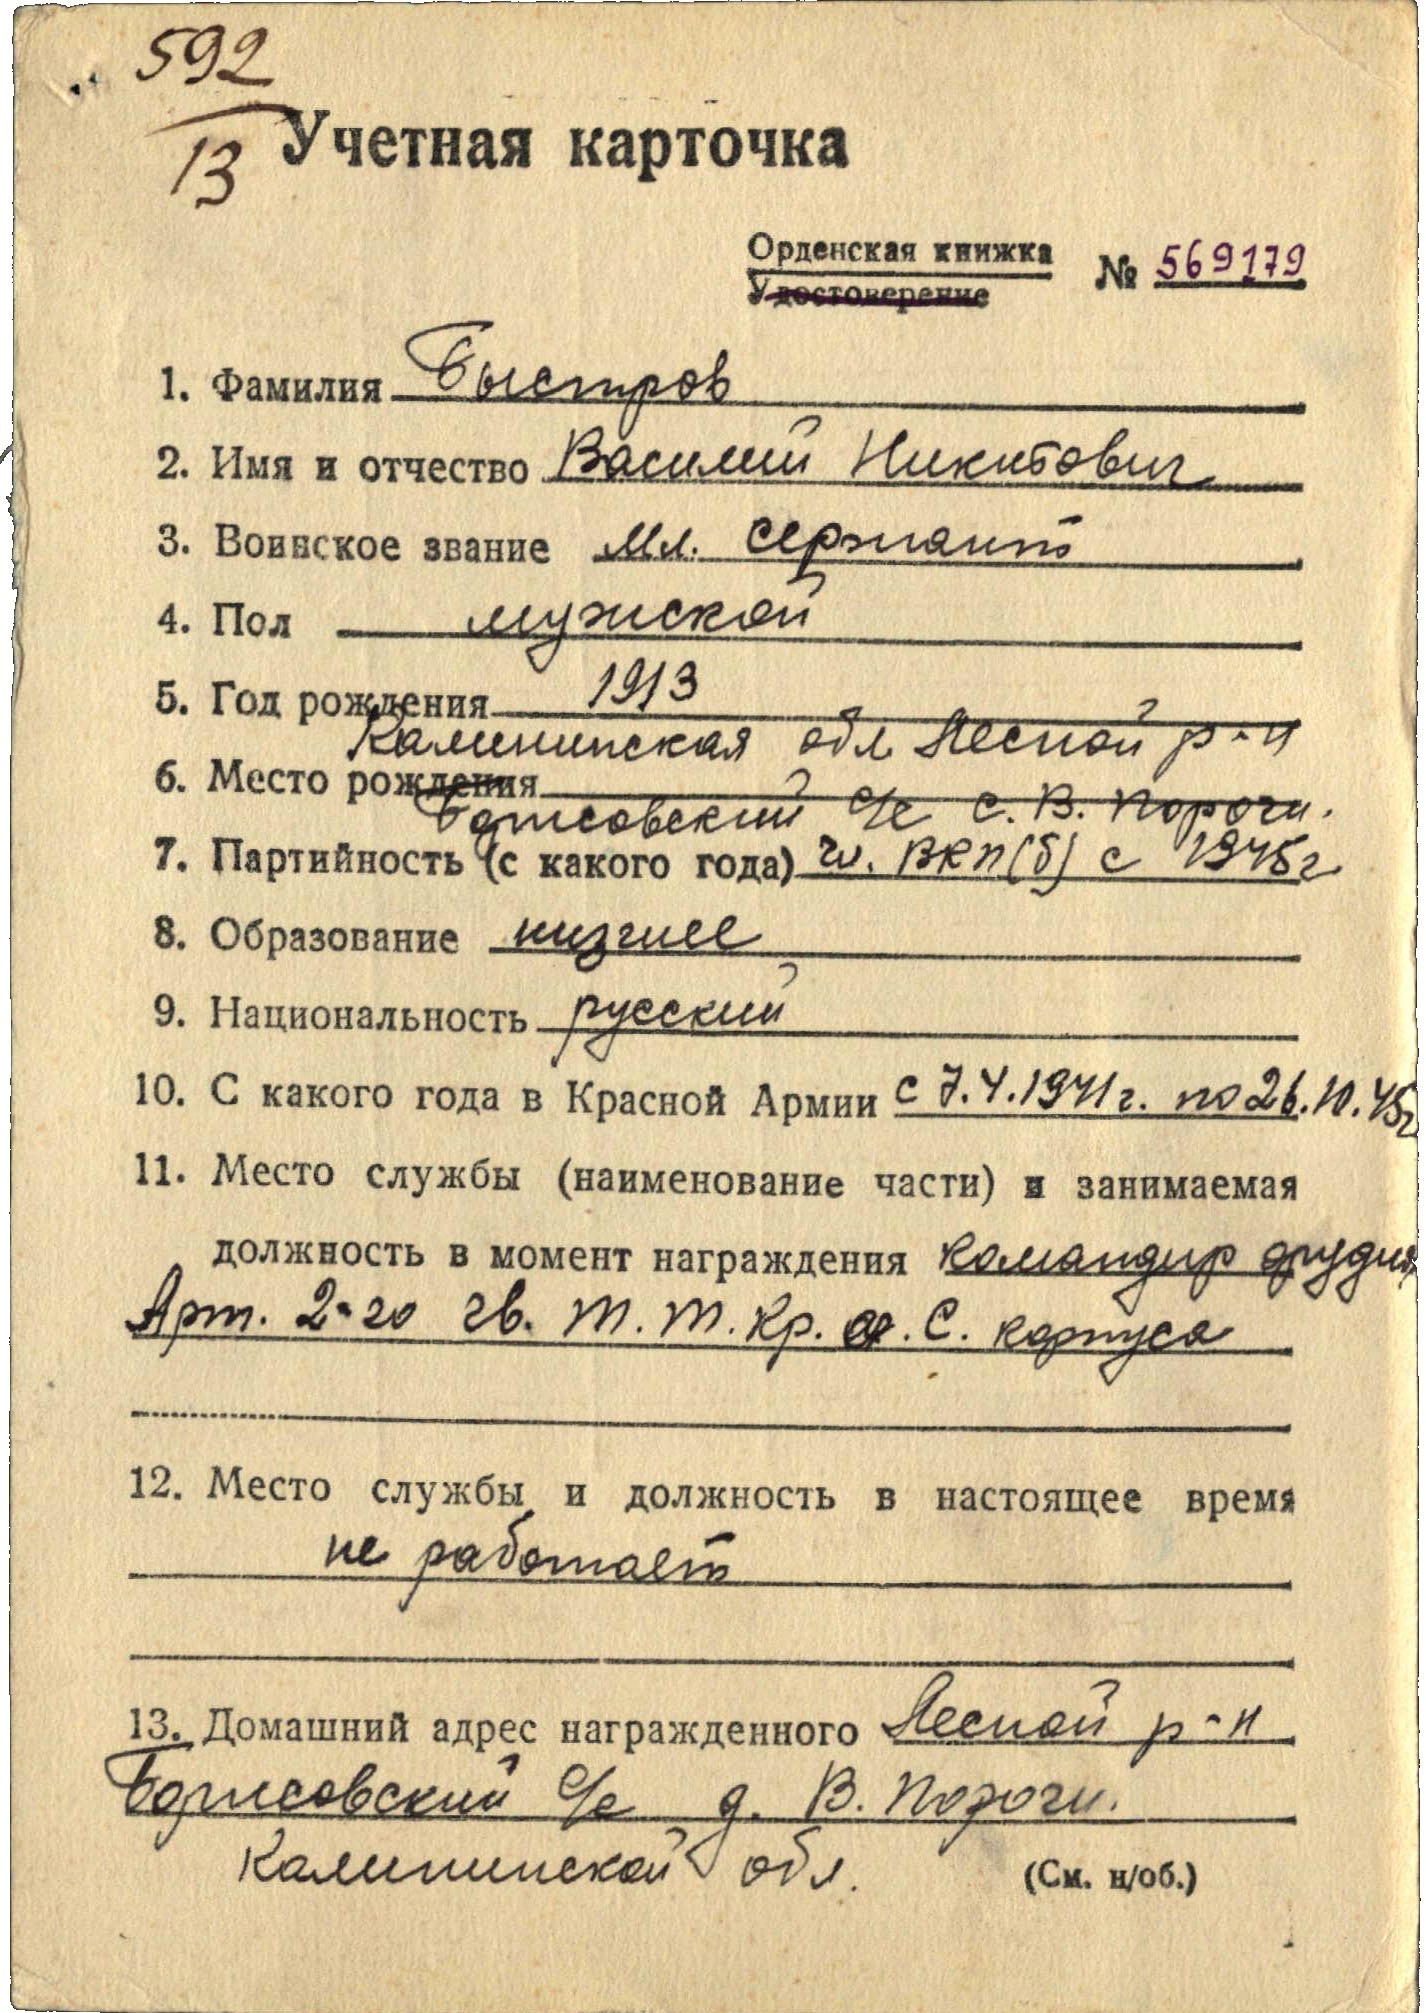 592
13
Учетная карточка
Орденская книжка
Удостоверение
№ 569179
1. Фамилия Быстров
2. Имя и отчество Василий Никитович
3. Воинское звание Мл. сержант
4. Пол мужской
5. Год рождения 1913
Калининская обл Лесной р-н
6. Место рождения
Борисовский с/с с. В. Пороги.
7. Партийность (с какого года) чл. ВКП(б) с 1945 г
8. Образование низшее
9. Национальность русский
10. С какого года в Красной Армии с 7.4.1941 г. по 26.10.45 г
11. Место службы (наименование части) и занимаемая
должность в момент награждения командир орудия
Арт. 2-го гв. Т. Т. Кр. С. корпуса
12. Место службы и должность в настоящее время
не работает
13. Домашний адрес награжденного Лесной р-н
Борисовский с/с д. В. Пороги.
Калининской обл.
(См. н/об.)